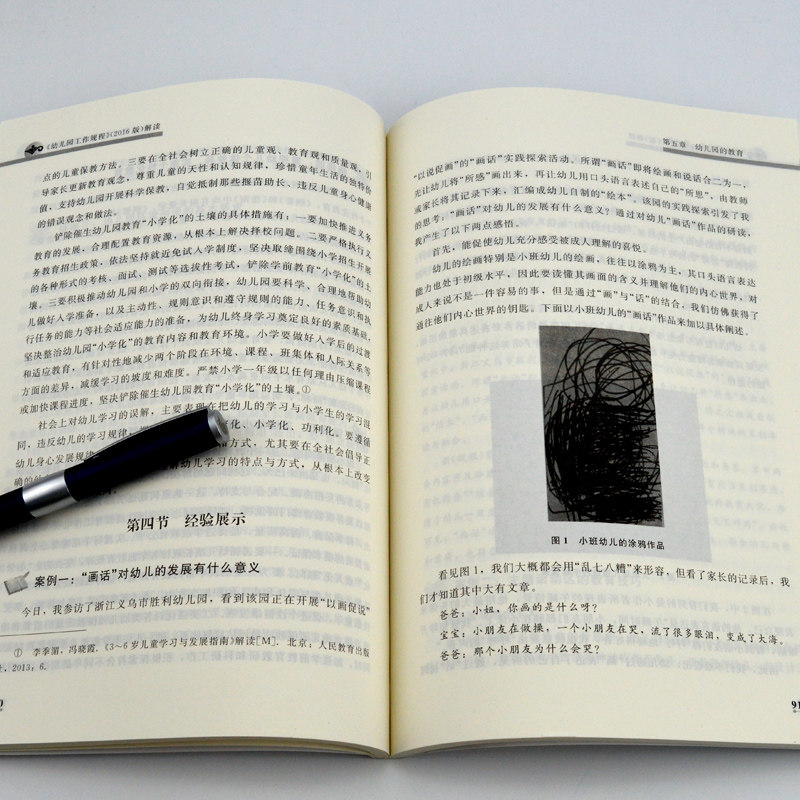 《幼儿园工作规程》(2016版)解读
点的儿童保教方法。三要在全社会树立正确的儿童观、教育观和质量观，引
导家长更新教育观念，尊重儿童的天性和认知规律，珍惜童年生活的独特价
值，支持幼儿园开展科学保教，自觉抵制那些揠苗助长、违反儿童身心健康
的错误观念和做法。
铲除催生幼儿园教育“小学化”的土壤的具体措施有：一要加快推进义务
教育的发展，合理配置教育资源，从根本上解决择校问题。二要严格执行义
务教育招生政策，依法坚持就近免试入学制度，坚决取缔围绕小学招生开展
的各种形式的考核、面试、测试等选拔性考试，铲除学前教育“小学化”的土
壤。三要积极推动幼儿园和小学的双向衔接，幼儿园要科学、合理地帮助幼
儿做好入学准备，以及主动性、规则意识和遵守规则的能力、任务意识和执
行任务的能力等社会适应能力的准备，为幼儿终身学习奠定良好的素质基础，
坚决整治幼儿园“小学化”的教育内容和教育环境。小学要做好入学后的过渡
和适应教育，有针对性地减少两个阶段在环境、课程、班集体和人际关系等
方面的差异，减缓学习的坡度和难度。严禁小学一年级以任何理由压缩课程
或加快课程进度，坚决铲除催生幼儿园教育“小学化”的土壤。①
社会上对幼儿学习的误解，主要表现在把幼儿的学习与小学生的学习混
同，违反幼儿的学习规律，化、小学化、功利化。要遵循
幼儿身心发展规律和方式，尤其要在全社会倡导正
确的幼儿学习的特点与方式，从根本上改变
第四节 经验展示
案例一：“画话”对幼儿的发展有什么意义
今日，我参访了浙江义乌市胜利幼儿园，看到该园正在开展“以画促说”
① 李季湄，冯晓霞.《3～6岁儿童学习与发展指南》解读[M]. 北京：人民教育出版
社，2013：6.
第五章 幼儿园的教育
“以说促画”的“画话”实践探索活动。所谓“画话”即将绘画和说话合二为一，
先让幼儿将“所感”画出来，再让幼儿用口头语言表述自己的“所思”，由教师
或家长将其记录下来，汇编成幼儿自制的“绘本”。该园的实践探索引发了我
的思考：“画话”对幼儿的发展有什么意义？通过对幼儿“画话”作品的研读，
我产生了以下两点感悟。
首先，能促使幼儿充分感受被成人理解的喜悦。
幼儿的绘画特别是小班幼儿的绘画，往往以涂鸦为主，其口头语言表达
能力也处于初级水平，因此要读懂其画面的含义并理解他们的内心世界，对
成人来说不是一件容易的事，但是通过“画”与“话”的结合，我们仿佛获得了
通往他们内心世界的钥匙。下面以小班幼儿的“画话”作品来加以具体阐述。
图1 小班幼儿的涂鸦作品
看见图1，我们大概都会用“乱七八糟”来形容，但看了家长的记录后，我
们才知道其中大有文章。
爸爸：小妞，你画的是什么呀？
宝宝：小朋友在做操，一个小朋友在哭，流了很多眼泪，变成了大海。
爸爸：那个小朋友为什么会哭？
91